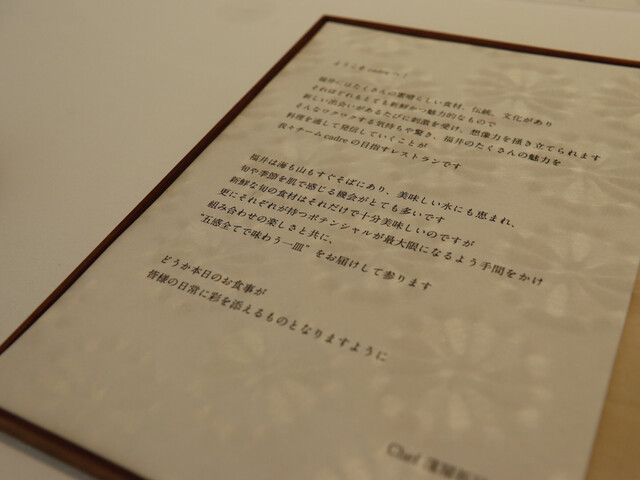 ようこそcadreへ！
福井にはたくさんの素晴らしい食材、伝統、文化があり
それはどれもとても新鮮かつ魅力的なもので
新しい出会いがあるたびに刺激を受け、想像力を掻き立てられます
そんなワクワクする気持ちや驚き、福井のたくさんの魅力を
料理を通して発信していくことが
我々チームcadreの目指すレストランです
福井は海も山もすぐそばにあり、美味しい水にも恵まれ、
旬や季節を肌で感じる機会がとても多いです
新鮮な旬の食材はそれだけで十分美味しいのですが
更にそれぞれが持つポテンシャルが最大限になるよう手間をかけ
組み合わせの楽しさと共に、
"五感全てで味わう一皿"をお届けして参ります
どうか本日のお食事が
皆様の日常に彩を添えるものとなりますように
Chef